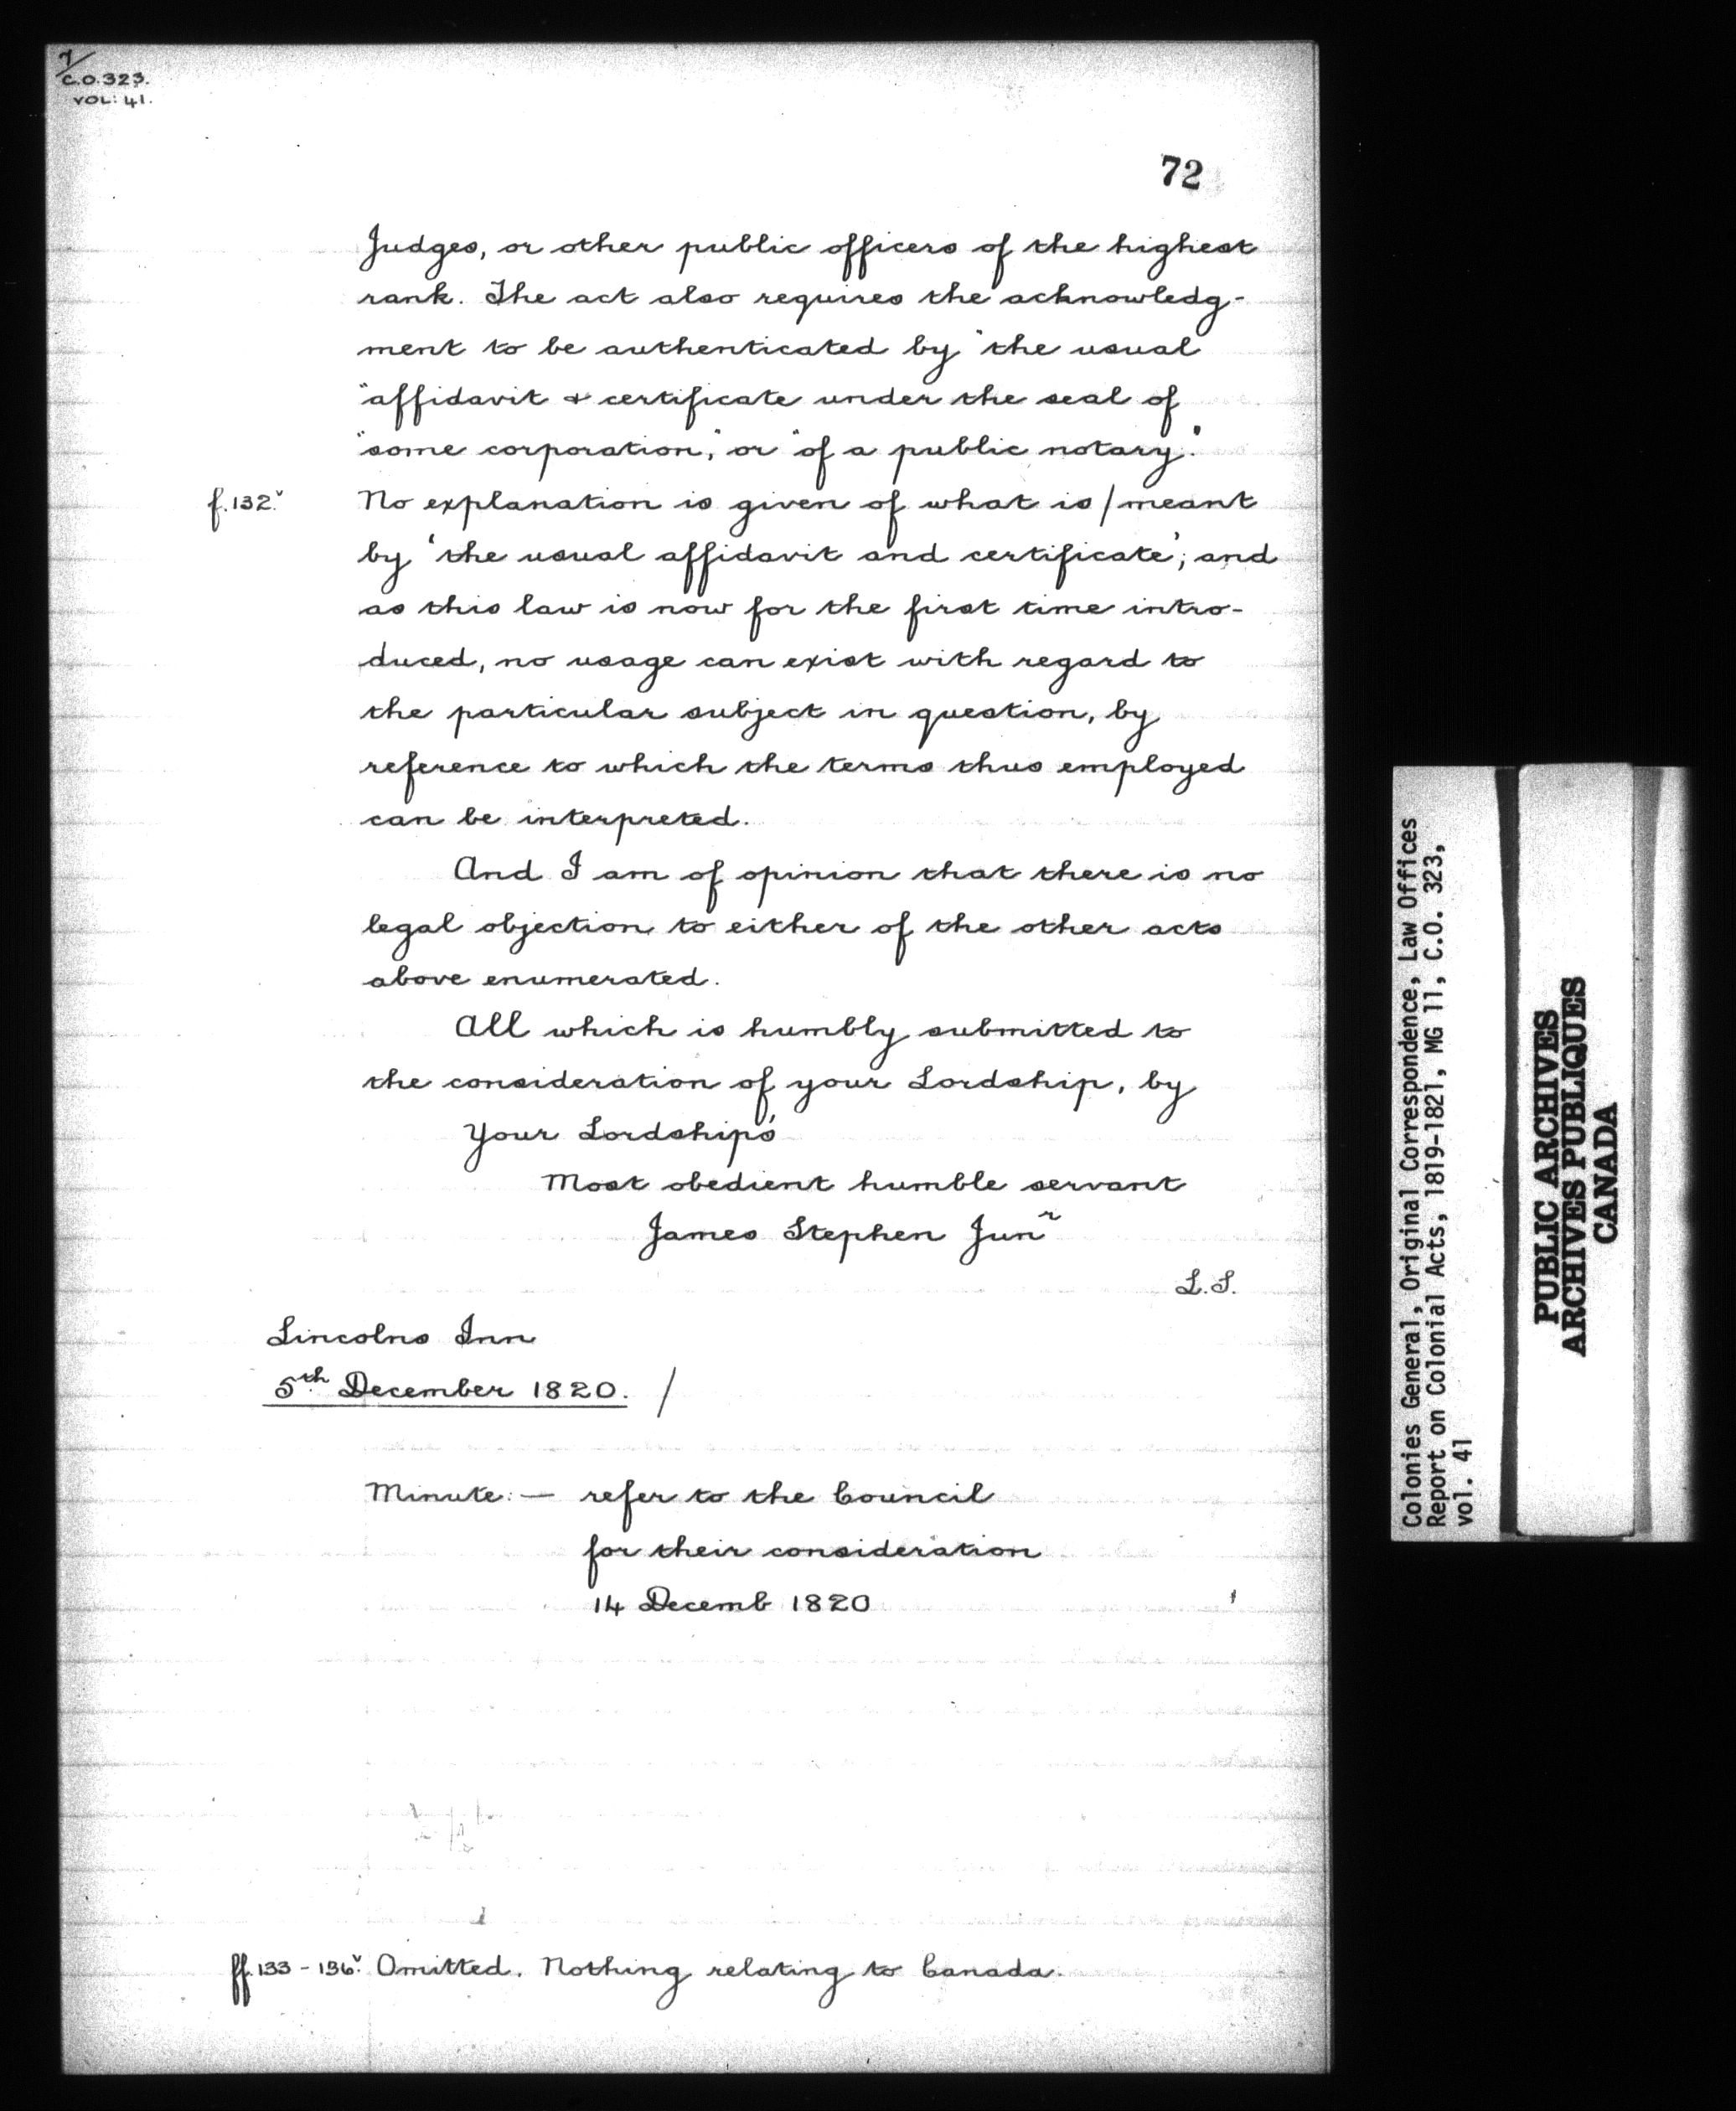 7/
C.O.323.
VOL: 41.
72
Judges, or other public officers of the highest
rank. The act also requires the acknowledg-
ment to be authenticated by "the usual
"affidavit & certificate under the seal of
"some corporation," or "of a public notary."
f.132.v No explanation is given of what is / meant
by 'the usual affidavit and certificate'; and
as this law is now for the first time intro-
duced, no usage can exist with regard to
the particular subject in question, by
reference to which the terms thus employed
can be interpreted.
And I am of opinion that there is no
legal objection to either of the other acts
above enumerated.
All which is humbly submitted to
the consideration of your Lordship, by
Your Lordship's
Most obedient humble servant
James Stephen Junr
L.S.
Lincolns Inn
5th December 1820. /
Minute: — refer to the Council
for their consideration
14 Decemb 1820
ff.133-136v. Omitted. Nothing relating to Canada.
Colonies General, Original Correspondence, Law Offices
Report on Colonial Acts, 1819-1821, MG 11, C.O. 323,
vol. 41
PUBLIC ARCHIVES
ARCHIVES PUBLIQUES
CANADA